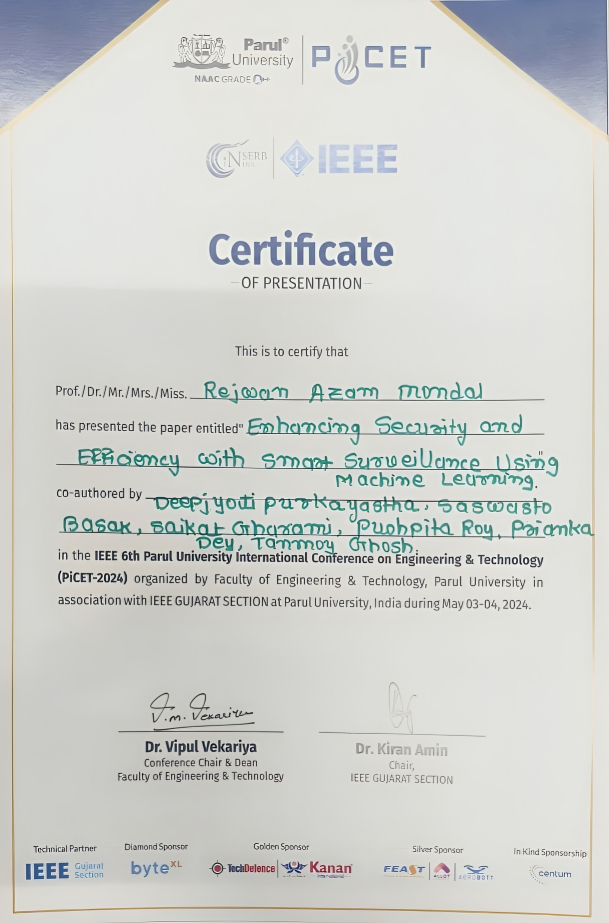 Parul® University
NAAC GRADE A++
PiCET
NSERB
IEEE
Certificate
OF PRESENTATION
This is to certify that
Prof./Dr./Mr./Mrs./Miss. Rejwan Azam Mondal
has presented the paper entitled" Enhancing Security and
Efficiency with Smart Surveillance Using"
Machine Learning.
co-authored by Deepjyoti Purkayastha, Saswasto
Basak, Saikat Gharami, Pushpita Roy, Prianka
Dey, Tanmoy Ghosh.
in the IEEE 6th Parul University International Conference on Engineering & Technology
(PiCET-2024) organized by Faculty of Engineering & Technology, Parul University in
association with IEEE GUJARAT SECTION at Parul University, India during May 03-04, 2024.
V.M. Vekariya
Dr. Vipul Vekariya
Conference Chair & Dean
Faculty of Engineering & Technology
Dr. Kiran Amin
Chair,
IEEE GUJARAT SECTION
Technical Partner
IEEE Gujarat Section
Diamond Sponsor
byteXL
Golden Sponsor
TechDefence
Kanan
Silver Sponsor
FEAST
AEROBOTT
In Kind Sponsorship
centum